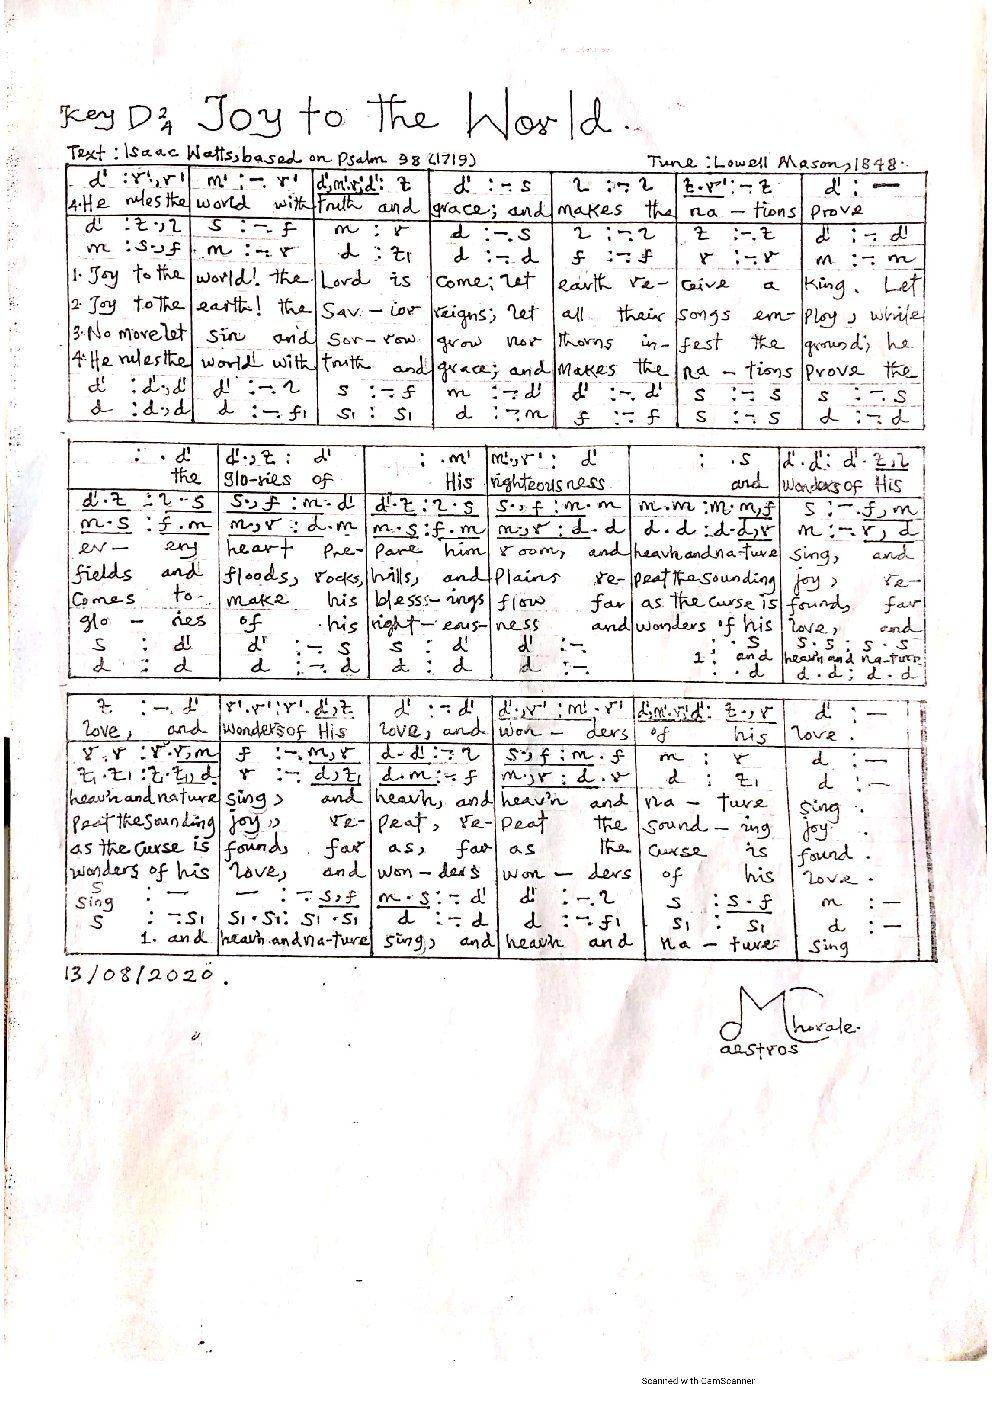 Key D 2/4 Joy to the World.
Text: Isaac Watts, based on Psalm 98 (1719) Tune: Lowell Mason, 1848.
d' :r'.,r' m' :-. r' d',m'.r',d': z d' :-. s l :-. l z.r' :-. z d' : —
4. He rules the world with truth and grace; and makes the na – tions prove
d' :z.,l s :-. f m : r d :-. s l :-. l z :-. z d' :-. d'
m :s.,f m :-. r d : z₁ d :-. d f :-. f r :-. r m :-. m
1. Joy to the world! the Lord is come; let earth re- ceive a King. Let
2. Joy to the earth! the Sav – ior reigns; let all their songs em- ploy, while
3. No more let sin and sor – row grow nor thorns in- fest the ground; he
4. He rules the world with truth and grace; and makes the na – tions prove the
d' :d'.,d' d' :-. l s :-. f m :-. d' d' :-. d' s :-. s s :-. s
d :d.,d d :-. f₁ s₁ : s₁ d :-. m f :-. f s :-. s d :-. d
: . d' d'.,z : d' : . m' m'.,r' : d' : . s d'.d': d'.z,l
the glo-ries of His righteousness and wonders of His
d'.z :l.s s.,f :m.d' d'.z :l.s s.,f :m.m m.m :m.m,f s :-.f,m
m.s :f.m m.,r :d.m m.s :f.m m.,r :d.d d.d :d.d,r m :-.r,d
ev – ery heart pre- pare him room, and heav'n and na-ture sing, and
fields and floods, rocks, hills, and plains re- peat the sounding joy, re-
comes to make his bless – ings flow far as the curse is found, far
glo – ries of his right – eous- ness and wonders of his love, and
s : d' d' :-. s s : d' d' :-. : . s s.s : s.s
1: and heav'n and na-ture
d : d d :-. d d : d d :-. : . d d.d : d.d
z :-. d' r'.r' :r'.d',z d' :-. d' d'.,r' :m'.r' d',m'.r',d': z.,r d' : —
love, and wonders of His love, and won – ders of his love.
r.r :r.r,m f :-.m,r d.d' :-. l s.,f :m.f m : r d :—
z₁.z₁ :z₁.z₁,d r :-.d,z₁ d.m :-. f m.,r :d.r d : z₁ d :—
heav'n and nature sing, and heav'n, and heav'n and na – ture sing.
peat the sounding joy, re- peat, re- peat the sound – ing joy.
as the curse is found, far as, far as the curse is found.
wonders of his love, and won – ders won – ders of his love.
s : — — :-.s,f m.s :-. d' d' :-. l s : s.f m :—
sing
s :-. s₁ s₁.s₁: s₁.s₁ d :-. d d :-. f₁ s₁ : s₁ d :—
1. and heav'n and na-ture sing, and heav'n and na – ture sing
13/08/2020.
Maestros Chorale.
Scanned with CamScanner